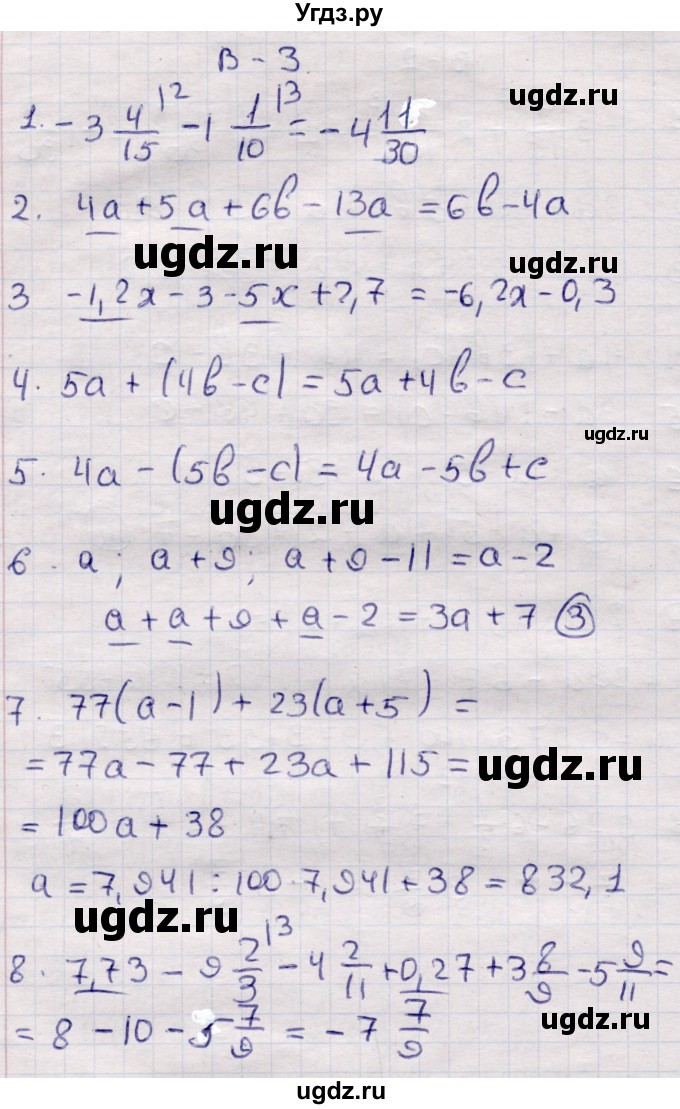 Угдз.ру
В - 3
ugdz.ru
1. - 3 4/15 |2 - 1 1/10 |3 = - 4 11/30
2. 4a + 5a + 6в - 13a = 6в - 4a
ugdz.ru
3 -1,2x - 3 - 5x + 2,7 = -6,2x - 0,3
4. 5a + (4в - c) = 5a + 4в - c
ugdz.ru
5. 4a - (5в - c) = 4a - 5в + c
ugdz.ru
6. a; a + 9; a + 9 - 11 = a - 2
a + a + 9 + a - 2 = 3a + 7 (3)
7. 77(a - 1) + 23(a + 5) =
= 77a - 77 + 23a + 115 =
ugdz.ru
= 100a + 38
a = 7,941; 100·7,941 + 38 = 832,1
ugdz.ru
8. 7,73 - 9 2/3 |3 - 4 2/11 + 0,27 + 3 8/9 - 5 9/11 =
= 8 - 10 - 5 7/9 = - 7 7/9
ugdz.ru
ugdz.ru